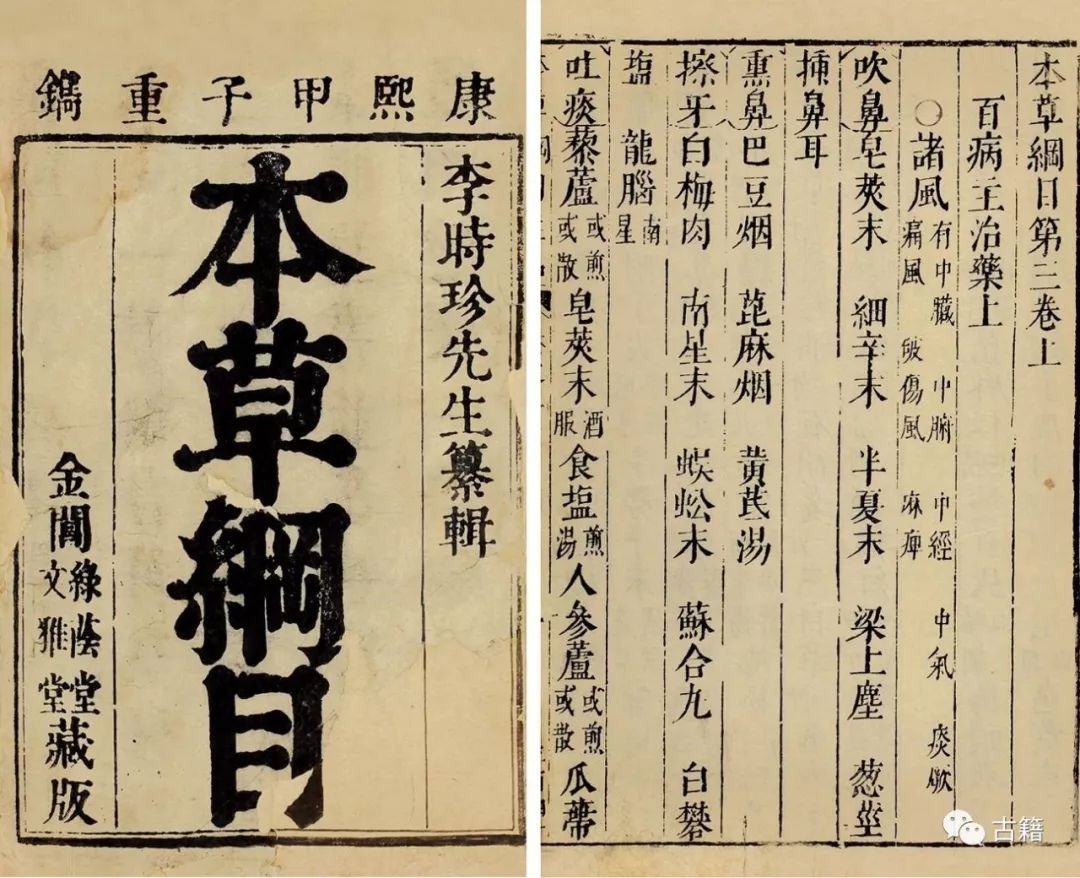 康熙甲子重鐫
李時珍先生纂輯
本草綱目
金閶綠蔭堂文雅堂藏版
本草綱目第三卷上
百病主治藥上
○諸風有中臟 中腑 中經 中氣 痰厥 痛風 破傷風 麻痺
吹鼻皂莢末 細辛末 半夏末 梁上塵 葱莖
插鼻耳
熏鼻巴豆烟 蓖麻烟 黃芪湯
擦牙白梅肉 南星末 蜈蚣末 蘇合丸 白礬
塩 龍腦南星
吐痰藜蘆或煎或散皂莢末酒服食塩煎湯人參蘆或煎或散瓜蒂
古籍